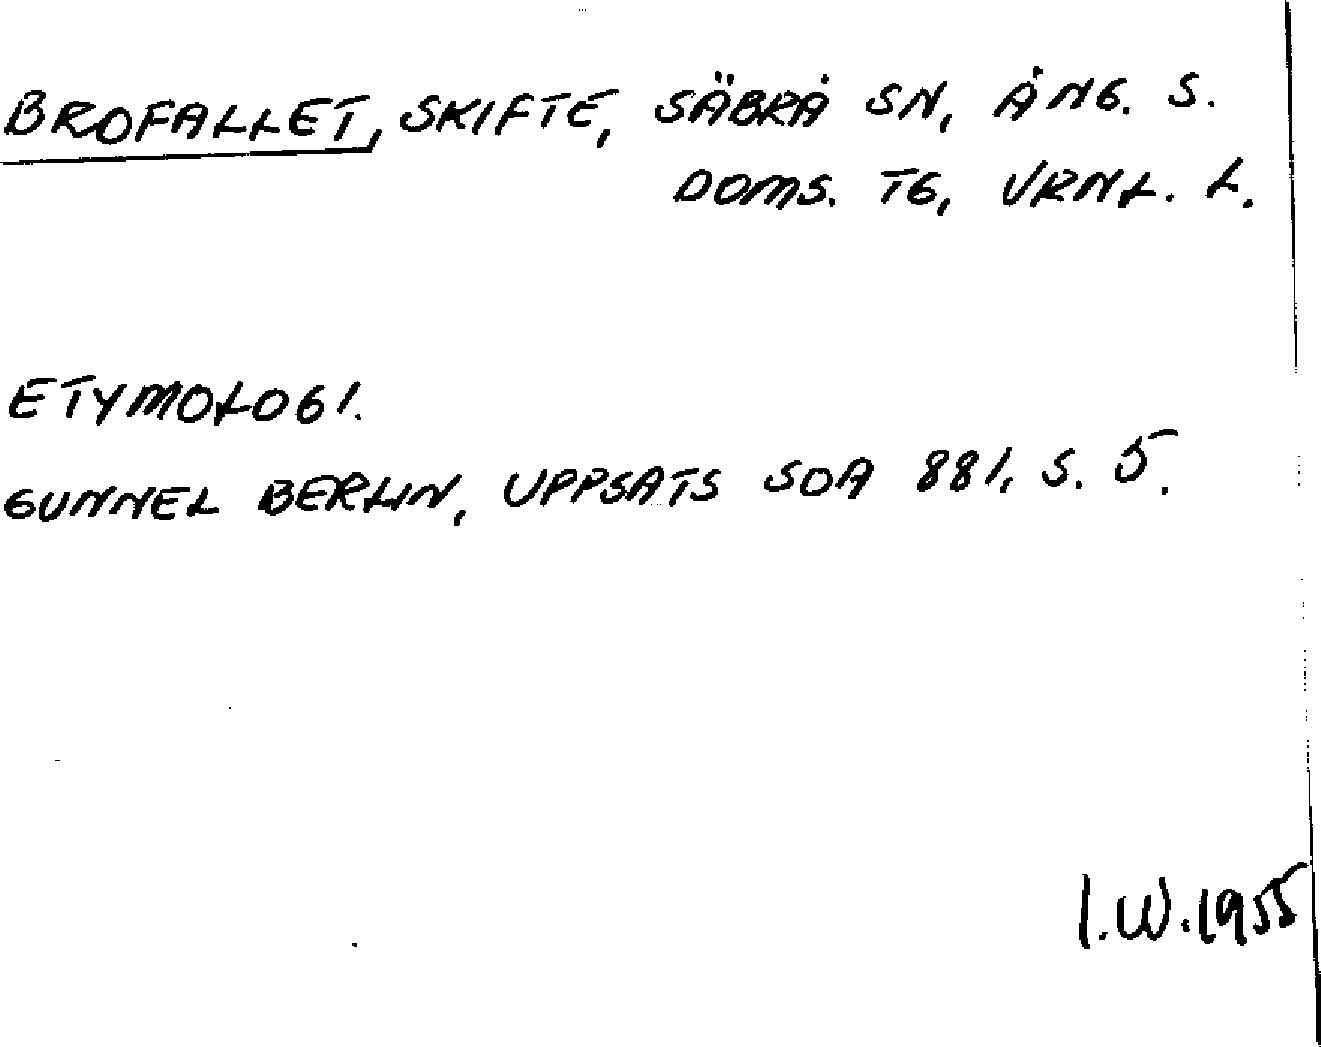 BROFALLET, SKIFTE, SÄBRÅ SN, ÅNG. S.
DOMS. TG, VRNL. L.
ETYMOLOGI.
GUNNEL BERLIN, UPPSATS SOA 881, S. 5.
I.W. 1955